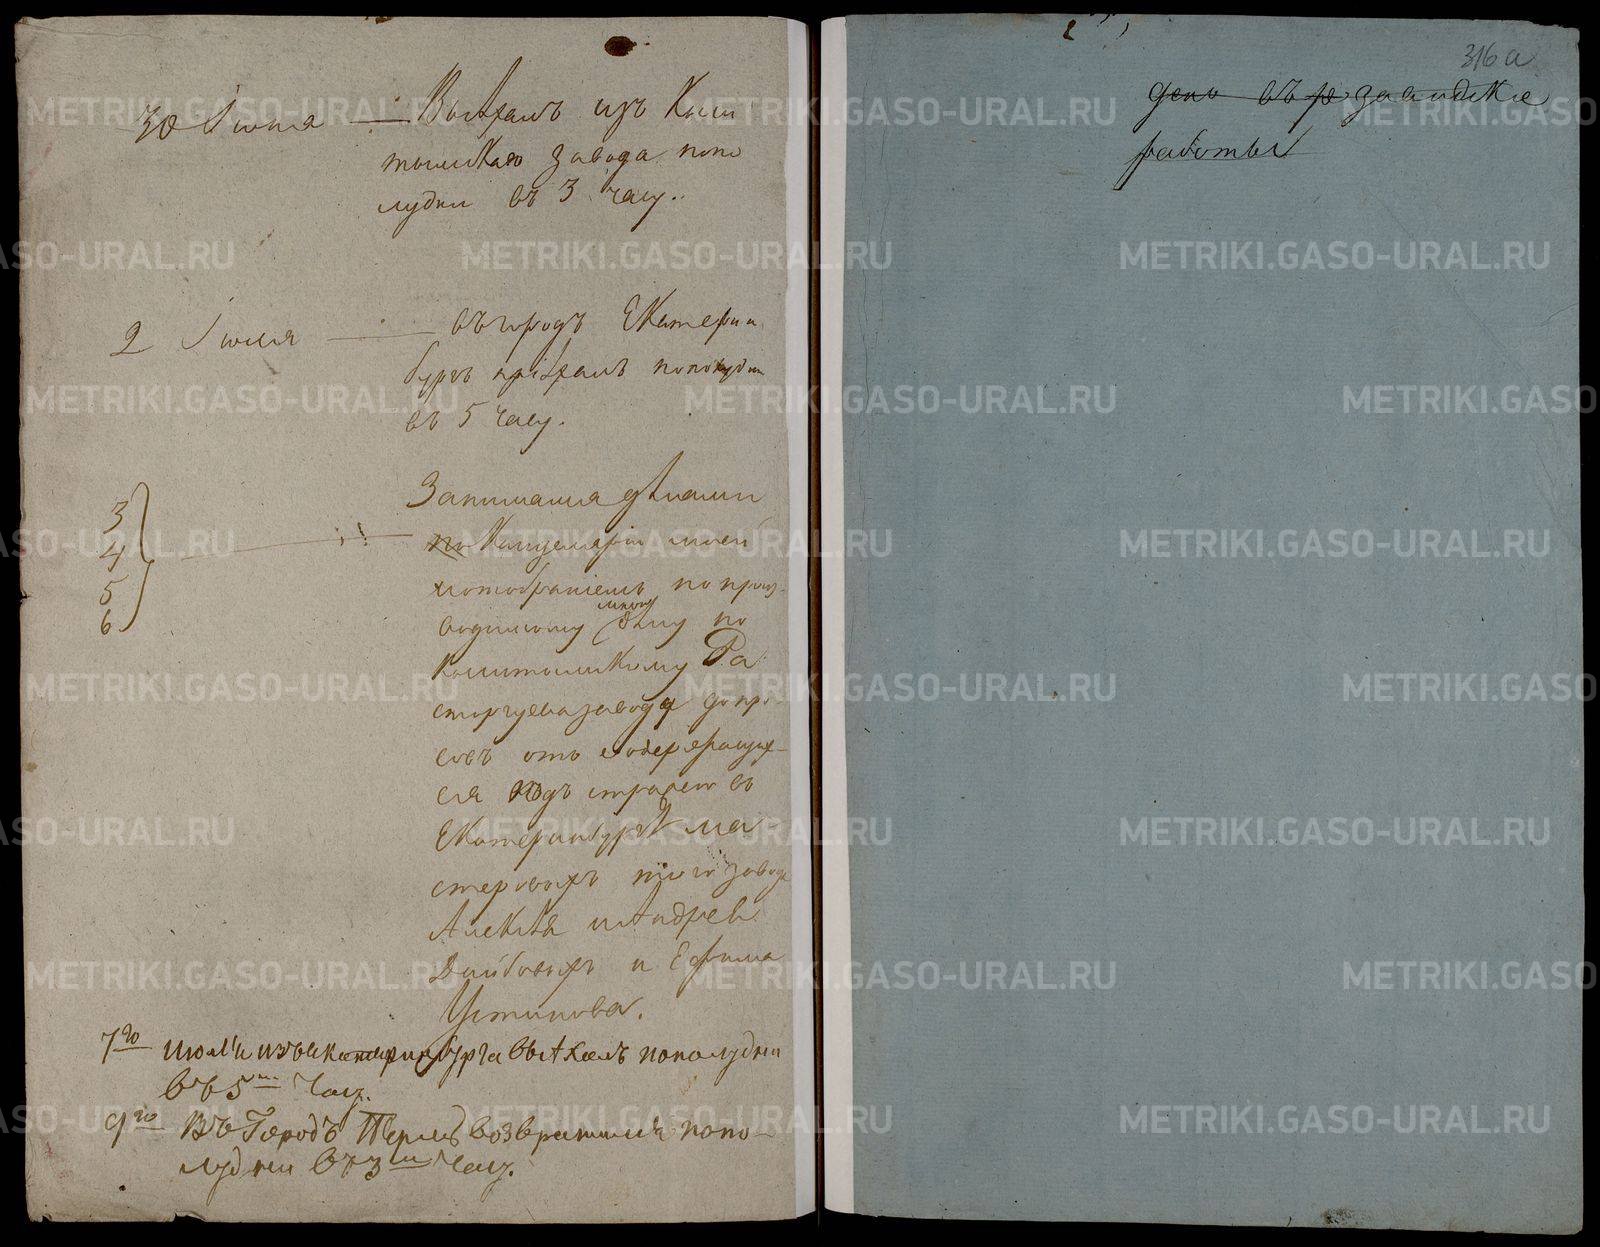 30 Июня — Выѣхалъ изъ Кыш
тымскаго завода попо
лудни въ 3 часу.
2 Июля — въ городъ Екатерин
бургъ пріѣхалъ пополудни
въ 5 часу.
3 4 5 6 — Занимался дѣлами
по Канцеляріи моей
и отобраніемъ по произ-
водимому мною дѣлу по
Кыштымскому Ра
сторгуева заводу допро
совъ отъ содержащих-
ся подъ стражею въ
Екатеринбургѣ ма
стеровыхъ того завода
Алексѣя и Андрея
и Ефима
Устинова.
7го июля изъ екатеринбурга выѣхалъ пополудни
въ 5м часу.
9го Въ Городъ Пермь возвратился попо-
лудни въ 3м часу.
316 а
день въ заводские
работы
METRIKI.GASO-URAL.RU